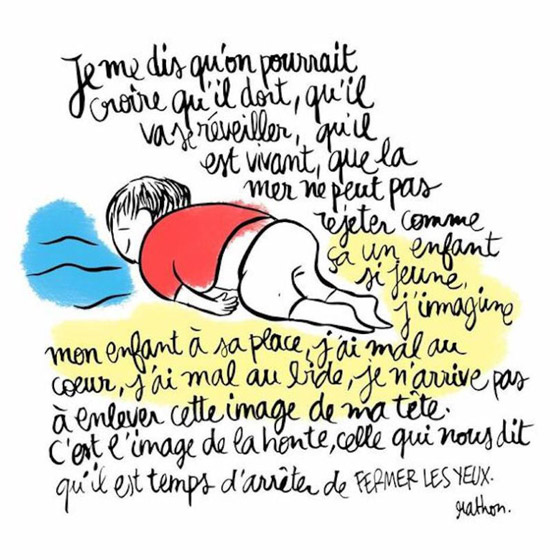 Je me dis qu'on pourrait
croire qu'il dort, qu'il
va se réveiller, qu'il
est vivant, que la
mer ne peut pas
rejeter comme
ça un enfant
si jeune,
j'imagine
mon enfant à sa place, j'ai mal au
coeur, j'ai mal au bide, je n'arrive pas
à enlever cette image de ma tête.
C'est l'image de la honte, celle qui nous dit
qu'il est temps d'arrêter de FERMER LES YEUX.
Mathon.